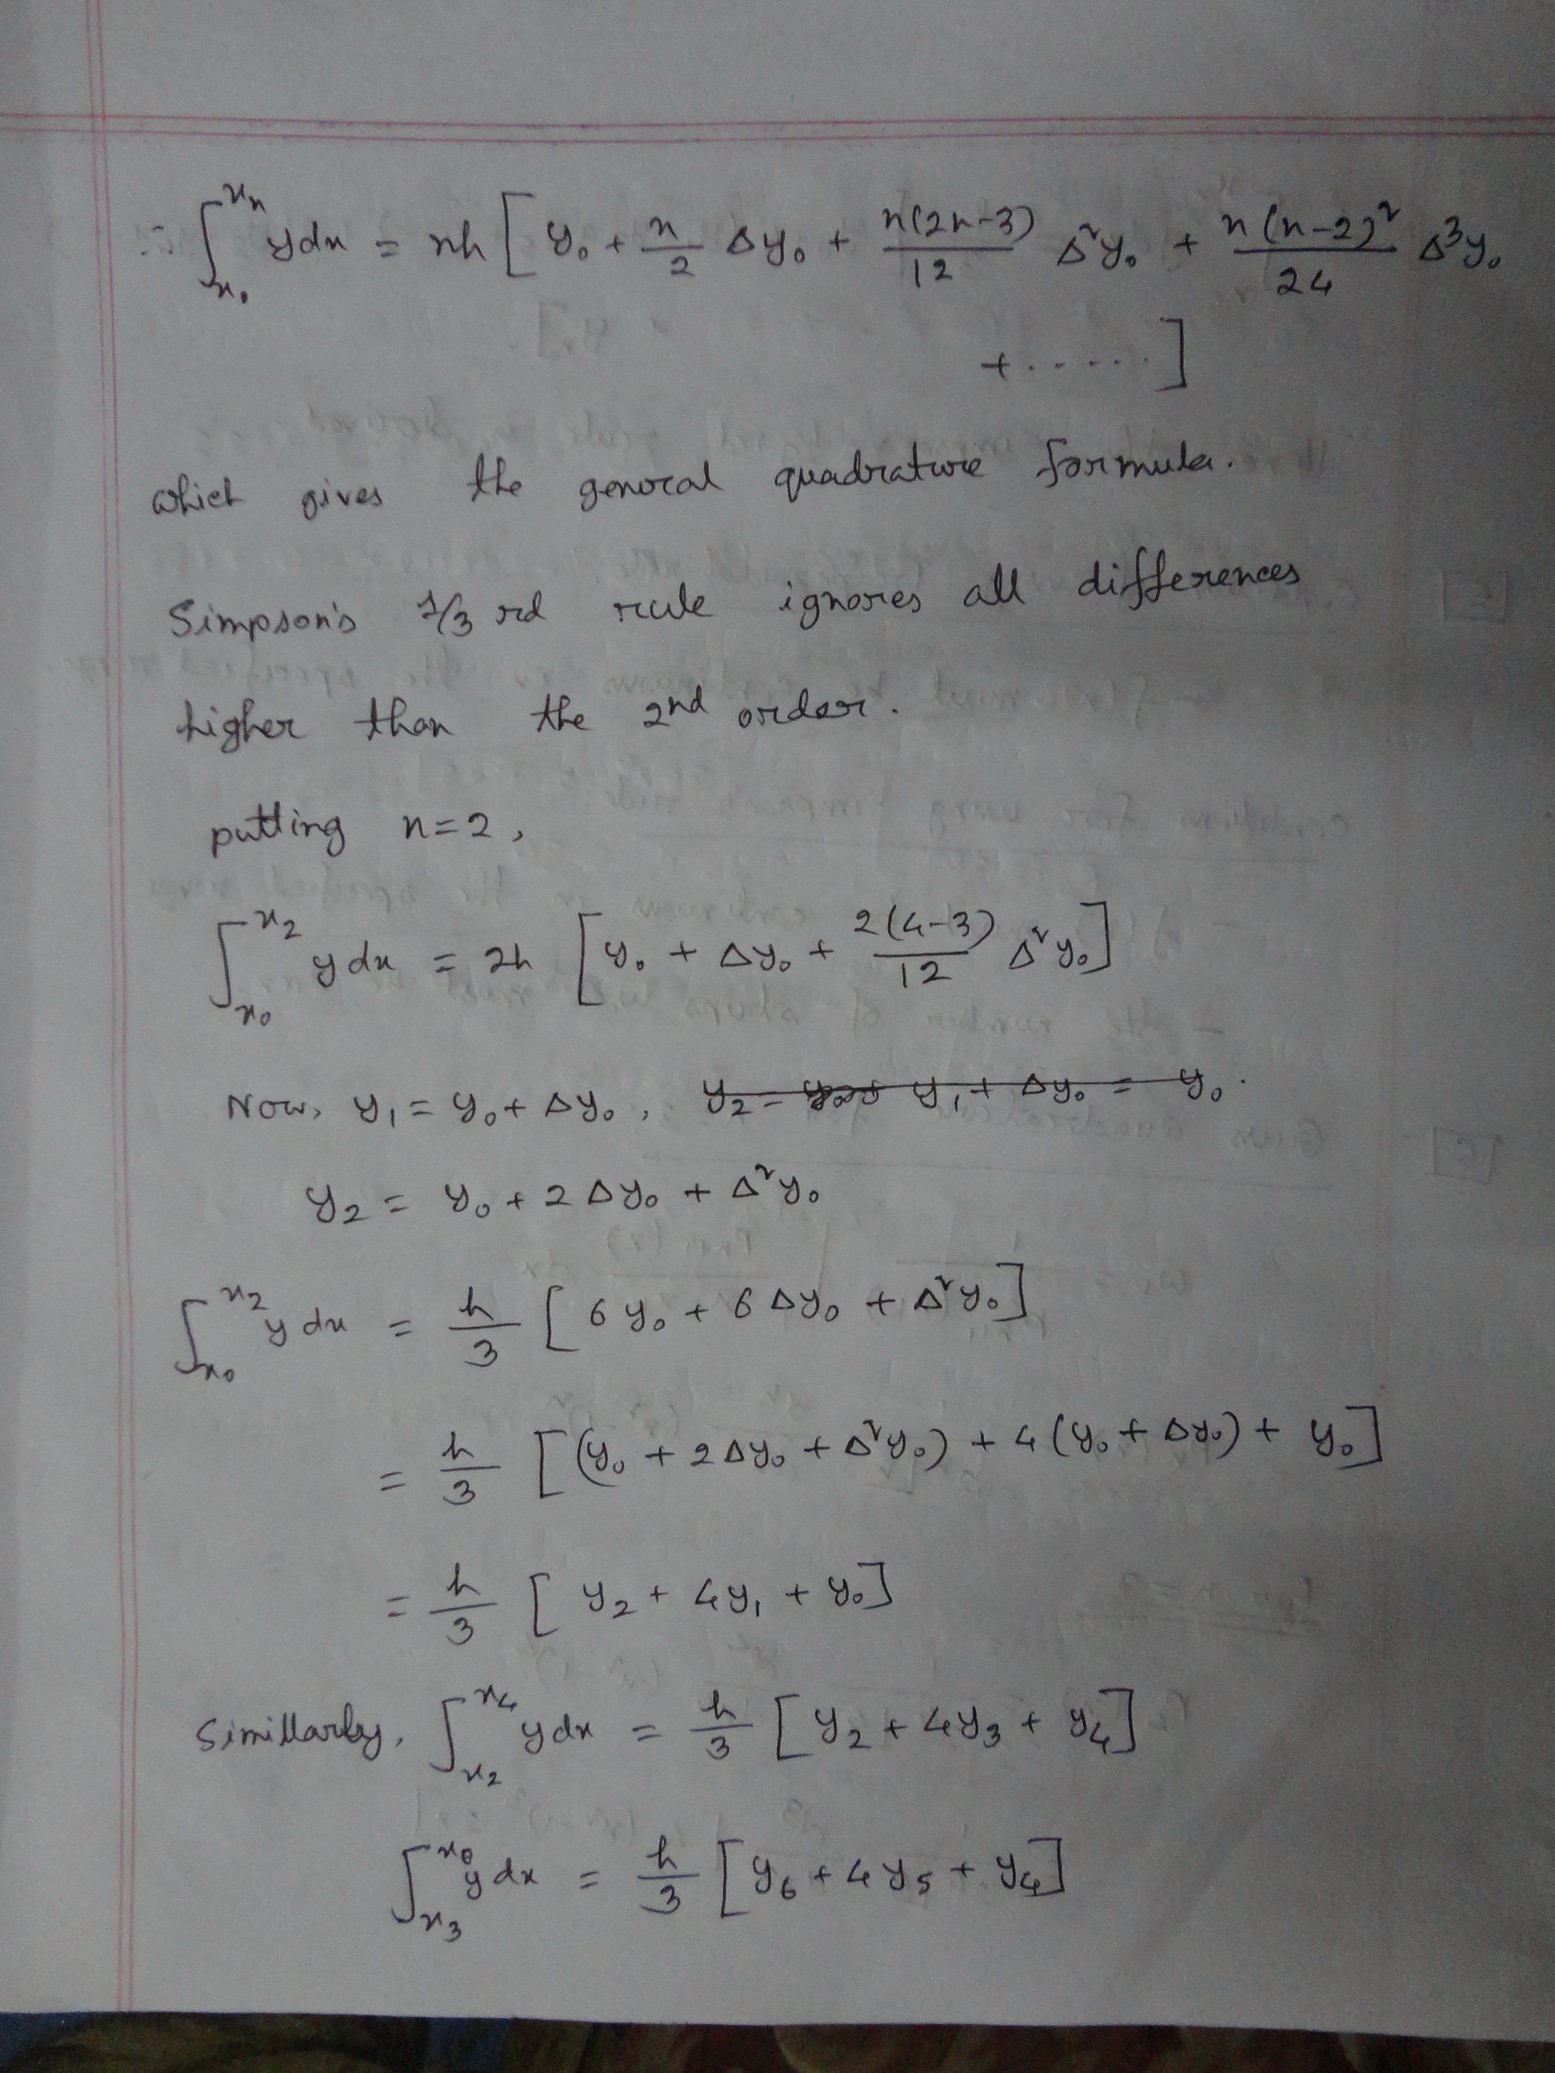 ∴ ∫_{x₀}^{xₙ} y dx = nh [ y₀ + n/2 Δy₀ + n(2n-3)/12 Δ²y₀ + n(n-2)²/24 Δ³y₀
+ ...... ]
which gives the general quadrature formula.
Simpson's 1/3 rd rule ignores all differences
higher than the 2nd order.
putting n=2,
∫_{x₀}^{x₂} y dx = 2h [ y₀ + Δy₀ + 2(4-3)/12 Δ²y₀ ]
Now, y₁ = y₀ + Δy₀ , y₂ = y₁ + Δy₀ = y₀.
y₂ = y₀ + 2Δy₀ + Δ²y₀
∫_{x₀}^{x₂} y dx = h/3 [ 6y₀ + 6Δy₀ + Δ²y₀ ]
= h/3 [ (y₀ + 2Δy₀ + Δ²y₀) + 4(y₀ + Δy₀) + y₀ ]
= h/3 [ y₂ + 4y₁ + y₀ ]
Simillarly, ∫_{x₂}^{x₄} y dx = h/3 [ y₂ + 4y₃ + y₄ ]
∫_{x₃}^{x₆} y dx = h/3 [ y₆ + 4y₅ + y₄ ]